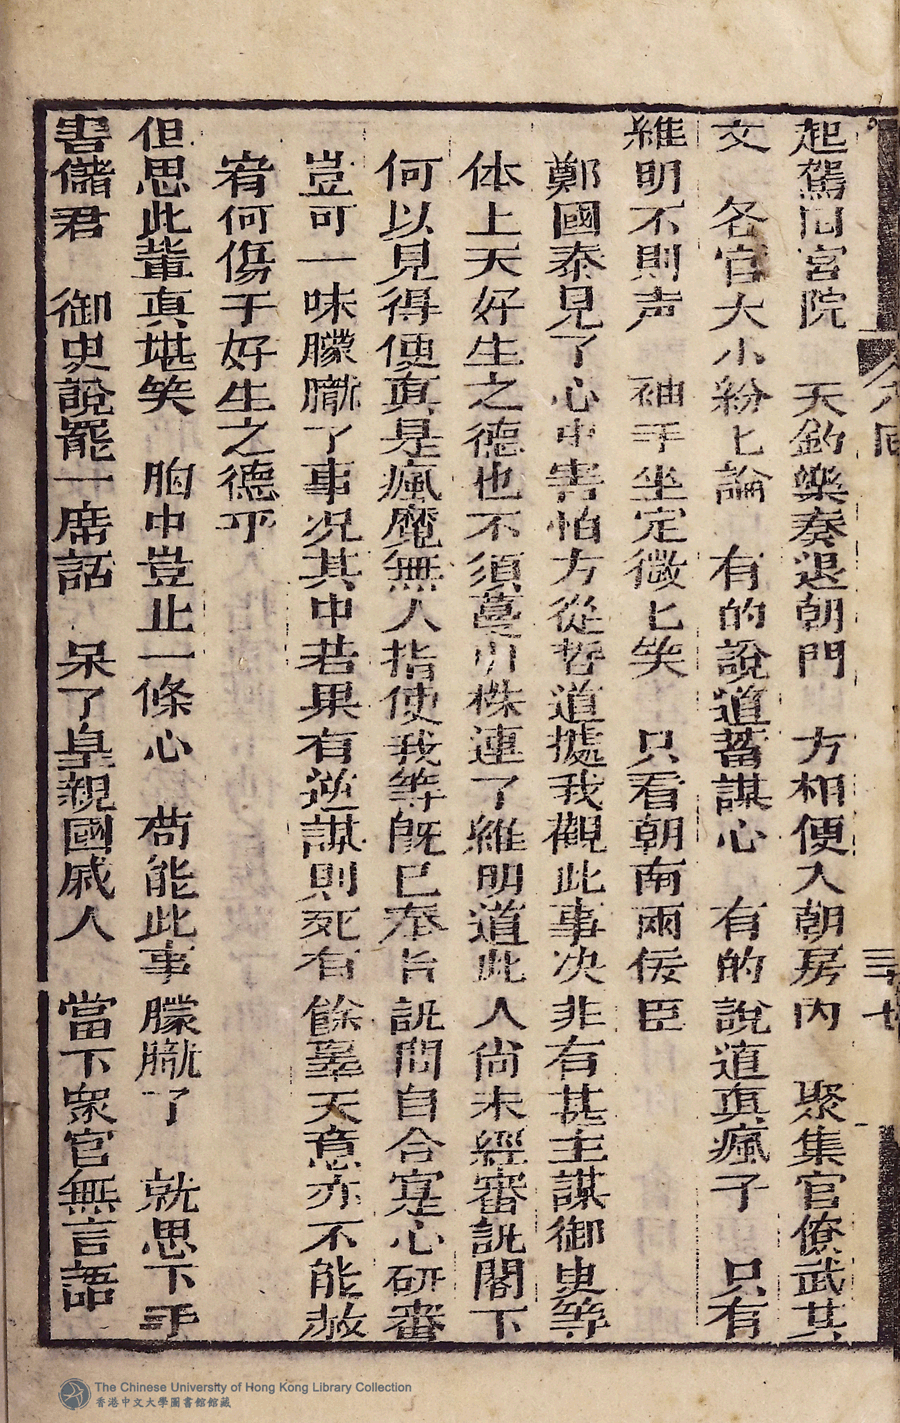 起駕回宮院　天鈞樂奏退朝門　方相便入朝房內　聚集官僚武共
文　各官大小紛匕論　有的說道蓄謀心　有的說道真瘋子　只有
維明不則声　袖手坐定微匕笑　只看朝南兩佞臣
鄭國泰見了心中害怕方從哲道據我觀此事决非有甚主謀御史等
体上天好生之德也不須蔓引株連了維明道此人尚未經審訊閣下
何以見得便真是瘋魔無人指使我等既已奉旨訊問自合寔心研審
豈可一味朦朧了事况其中若果有逆謀則死有餘辜天意亦不能赦
宥何傷于好生之德乎
但思此輩真堪笑　胸中豈止一條心　苟能此事朦朧了　就思下手
害儲君　御史說罷一席話　呆了皇親國戚人　當下衆官無言語
八回
三十七
The Chinese University of Hong Kong Library Collection
香港中文大學圖書館館藏